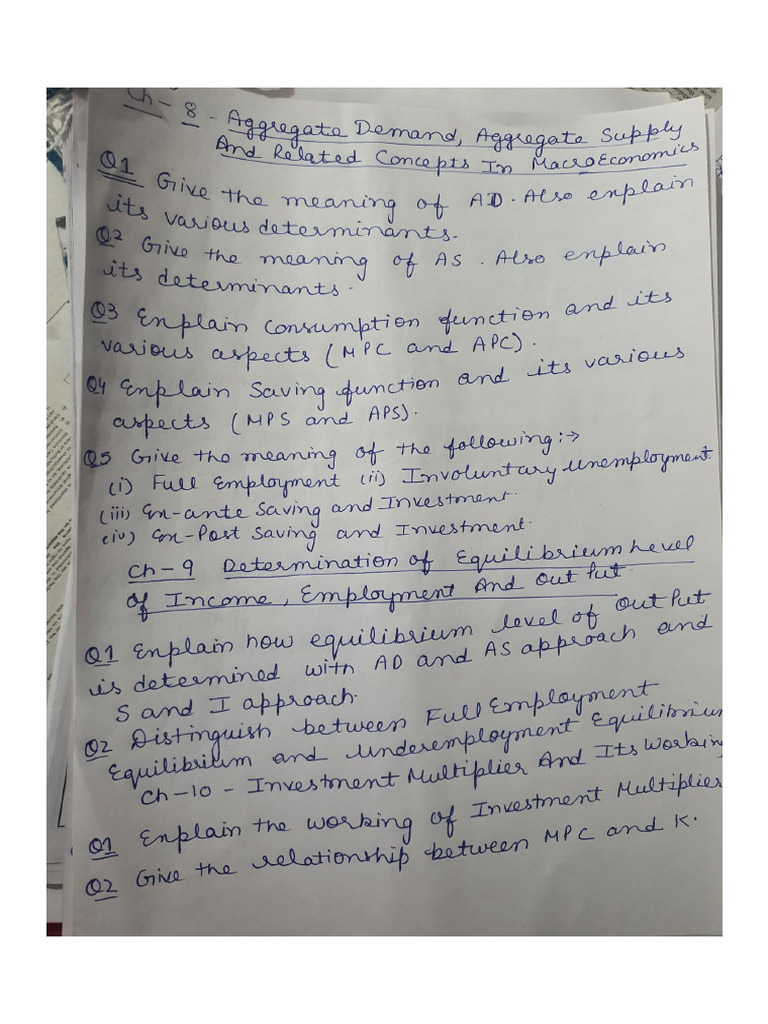 Ch - 8 - Aggregate Demand, Aggregate Supply
And Related Concepts In MacroEconomics
Q1 Give the meaning of AD. Also explain
its various determinants.
Q2 Give the meaning of AS. Also explain
its determinants.
Q3 Explain Consumption function and its
various aspects (MPC and APC).
Q4 Explain Saving function and its various
aspects (MPS and APS).
Q5 Give the meaning of the following:→
(i) Full Employment (ii) Involuntary Unemployment
(iii) Ex-ante Saving and Investment.
(iv) Ex-Post Saving and Investment.
Ch-9 Determination of Equilibrium Level
of Income, Employment And Out Put
Q1 Explain how equilibrium level of Out Put
is determined with AD and AS approach and
S and I approach.
Q2 Distinguish between Full Employment
Equilibrium and Underemployment Equilibrium
Ch-10 - Investment Multiplier And Its Working
Q1 Explain the working of Investment Multiplier
Q2 Give the relationship between MPC and K.